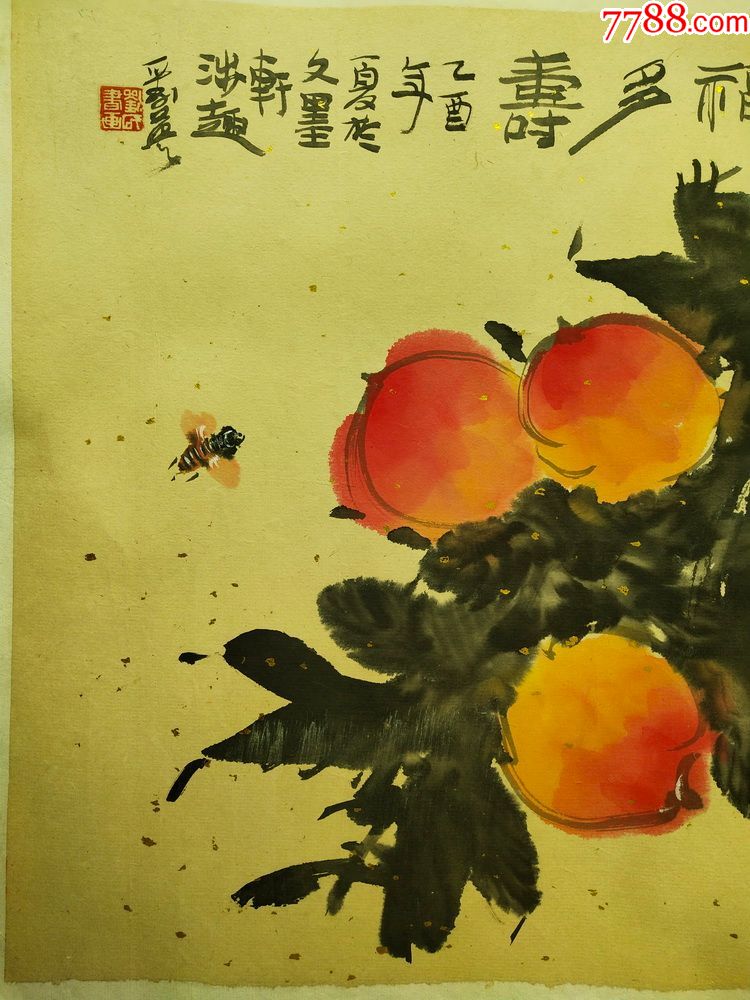 7788.com
福
多
壽
乙酉
年
夏於
文墨
軒
涉趣
劉氏
書画